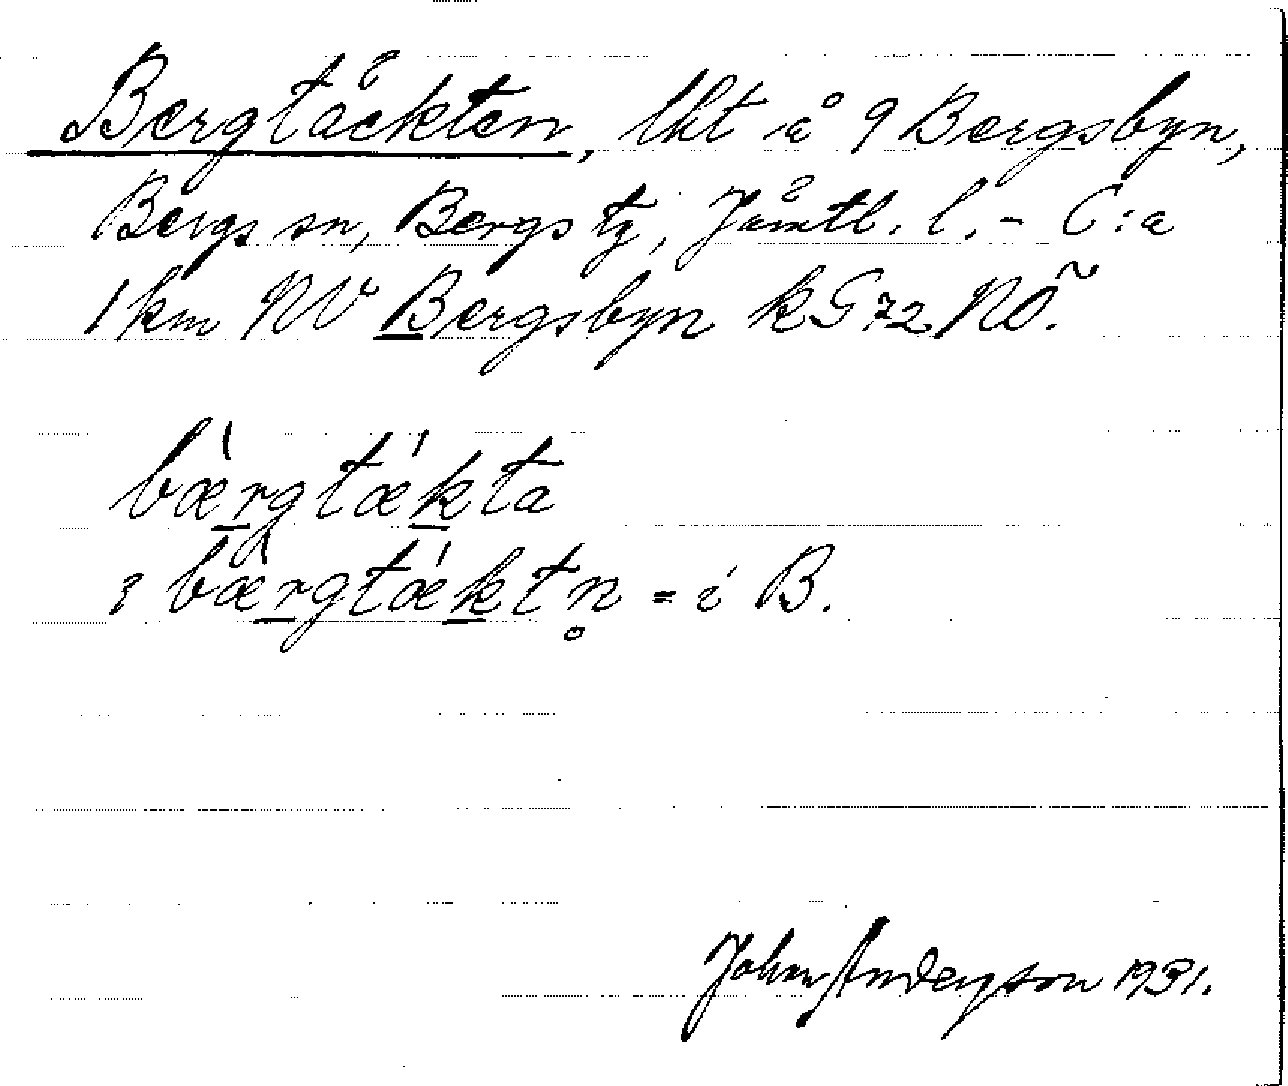 Bergtäckten, lht å 9 Bergsbyn,
Bergs sn, Bergs tg, Jämtl. l. - C:a
1 km NV Bergsbyn kG 72 NÖ.
bæ̀rgtǽkta
i bæ̀rgtǽktn̥ = i B.
John Anderson 1931.